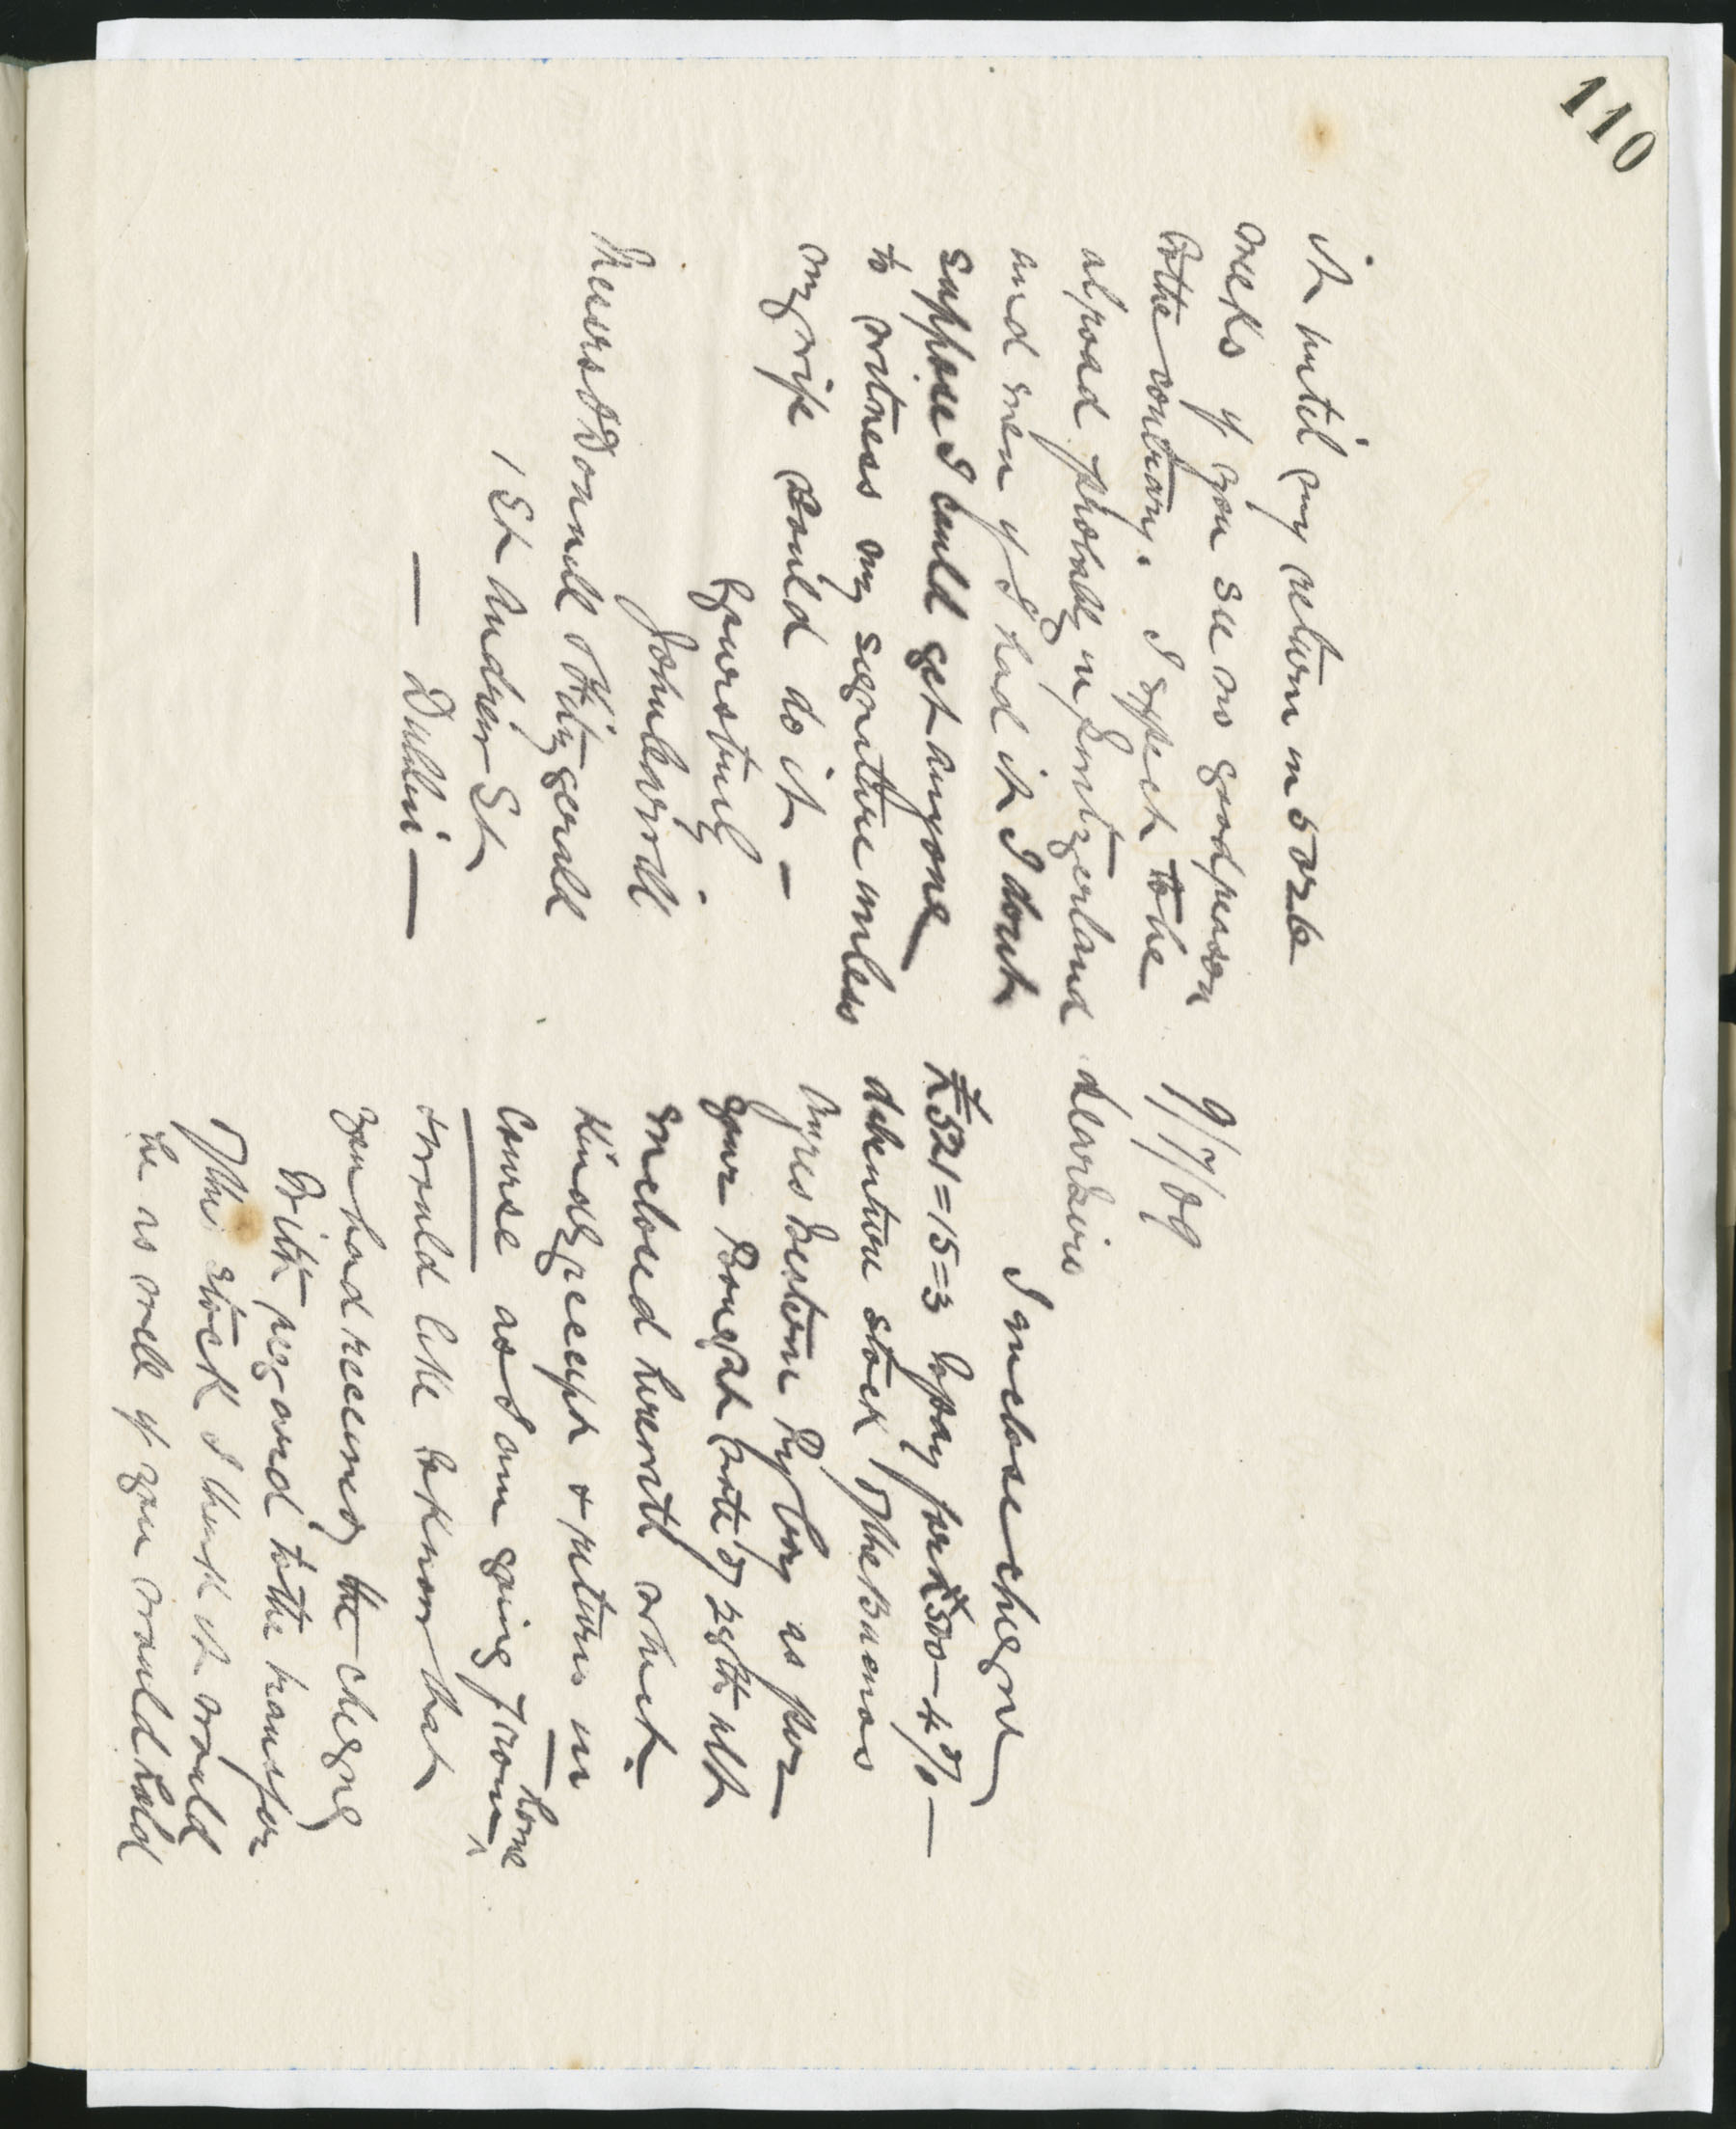 110
9/7/09
Dear Sirs
I enclose cheque
£521=15=3 to pay for £500-4%-
debenture stock of the Buenos
Ayres Western Ry Coy as per
your Bought note of 29th ult
enclosed herewith which
kindly receipt & return in
course as I am going from home
& would like to know that
you had received the cheque
With regard to the transfer
of the stock I think it would
be as well if you would hold
it until my return in 5 or 6
weeks if you see no good reason
to the contrary. I expect to be
abroad probably in Switzerland
and even if I had it I dont
suppose I could get anyone
to witness my signature unless
my wife could do it -
Yours truly
John
Messrs O'Donnell & Fitzgerald
1 St Andrew St
— Dublin —